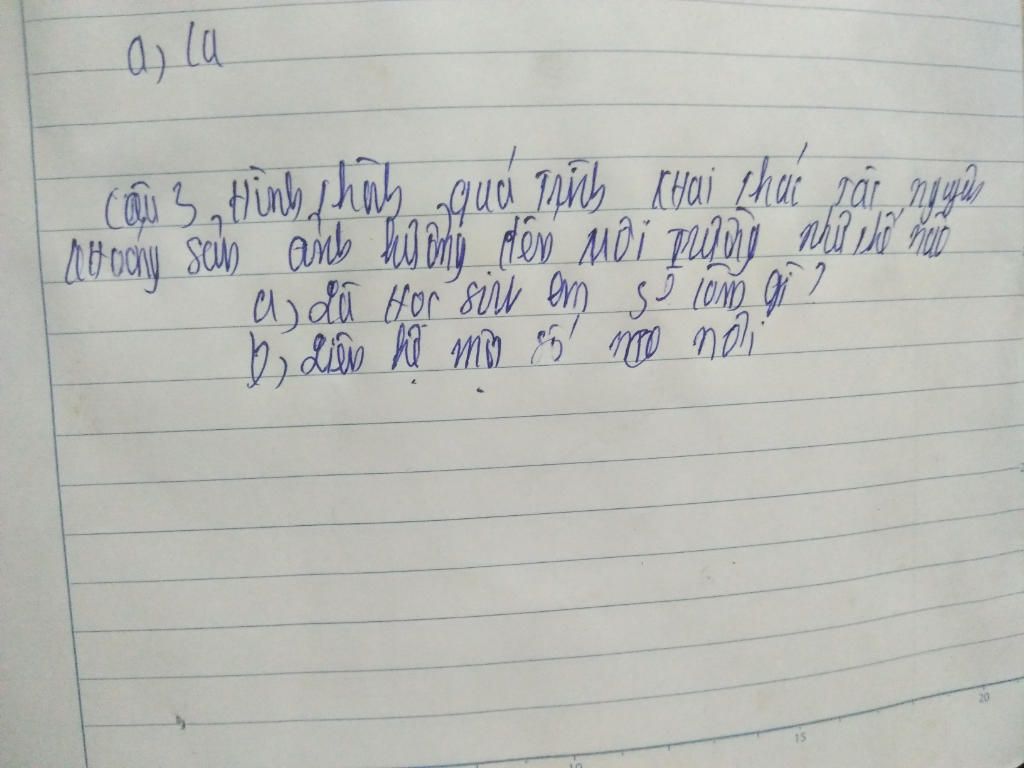 a, la
Câu 3, Hình thành quá trình khai thác tài nguyên
khoáng sản ảnh hưởng đến môi trường như thế nào
a, Là học sinh em sẽ làm gì?
b, Liên hệ một số nơi
15
20